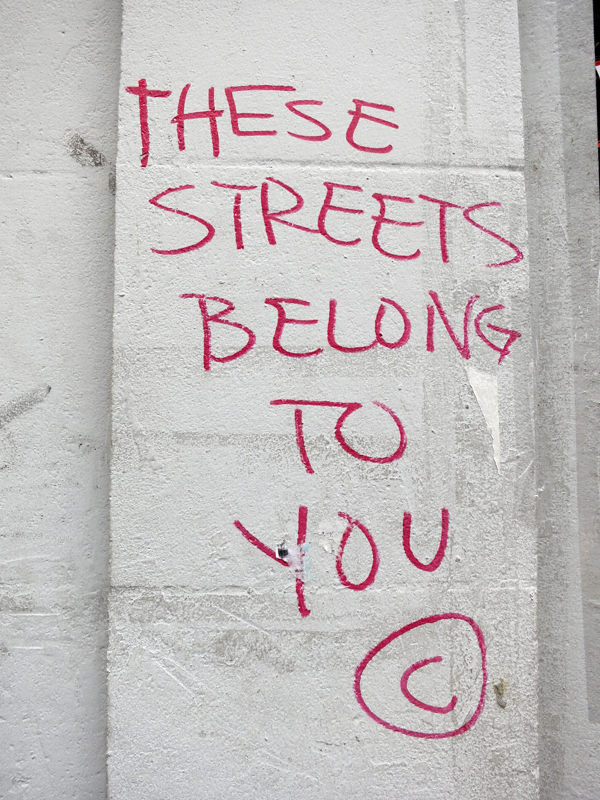 THESE
STREETS
BELONG
TO
YOU
©